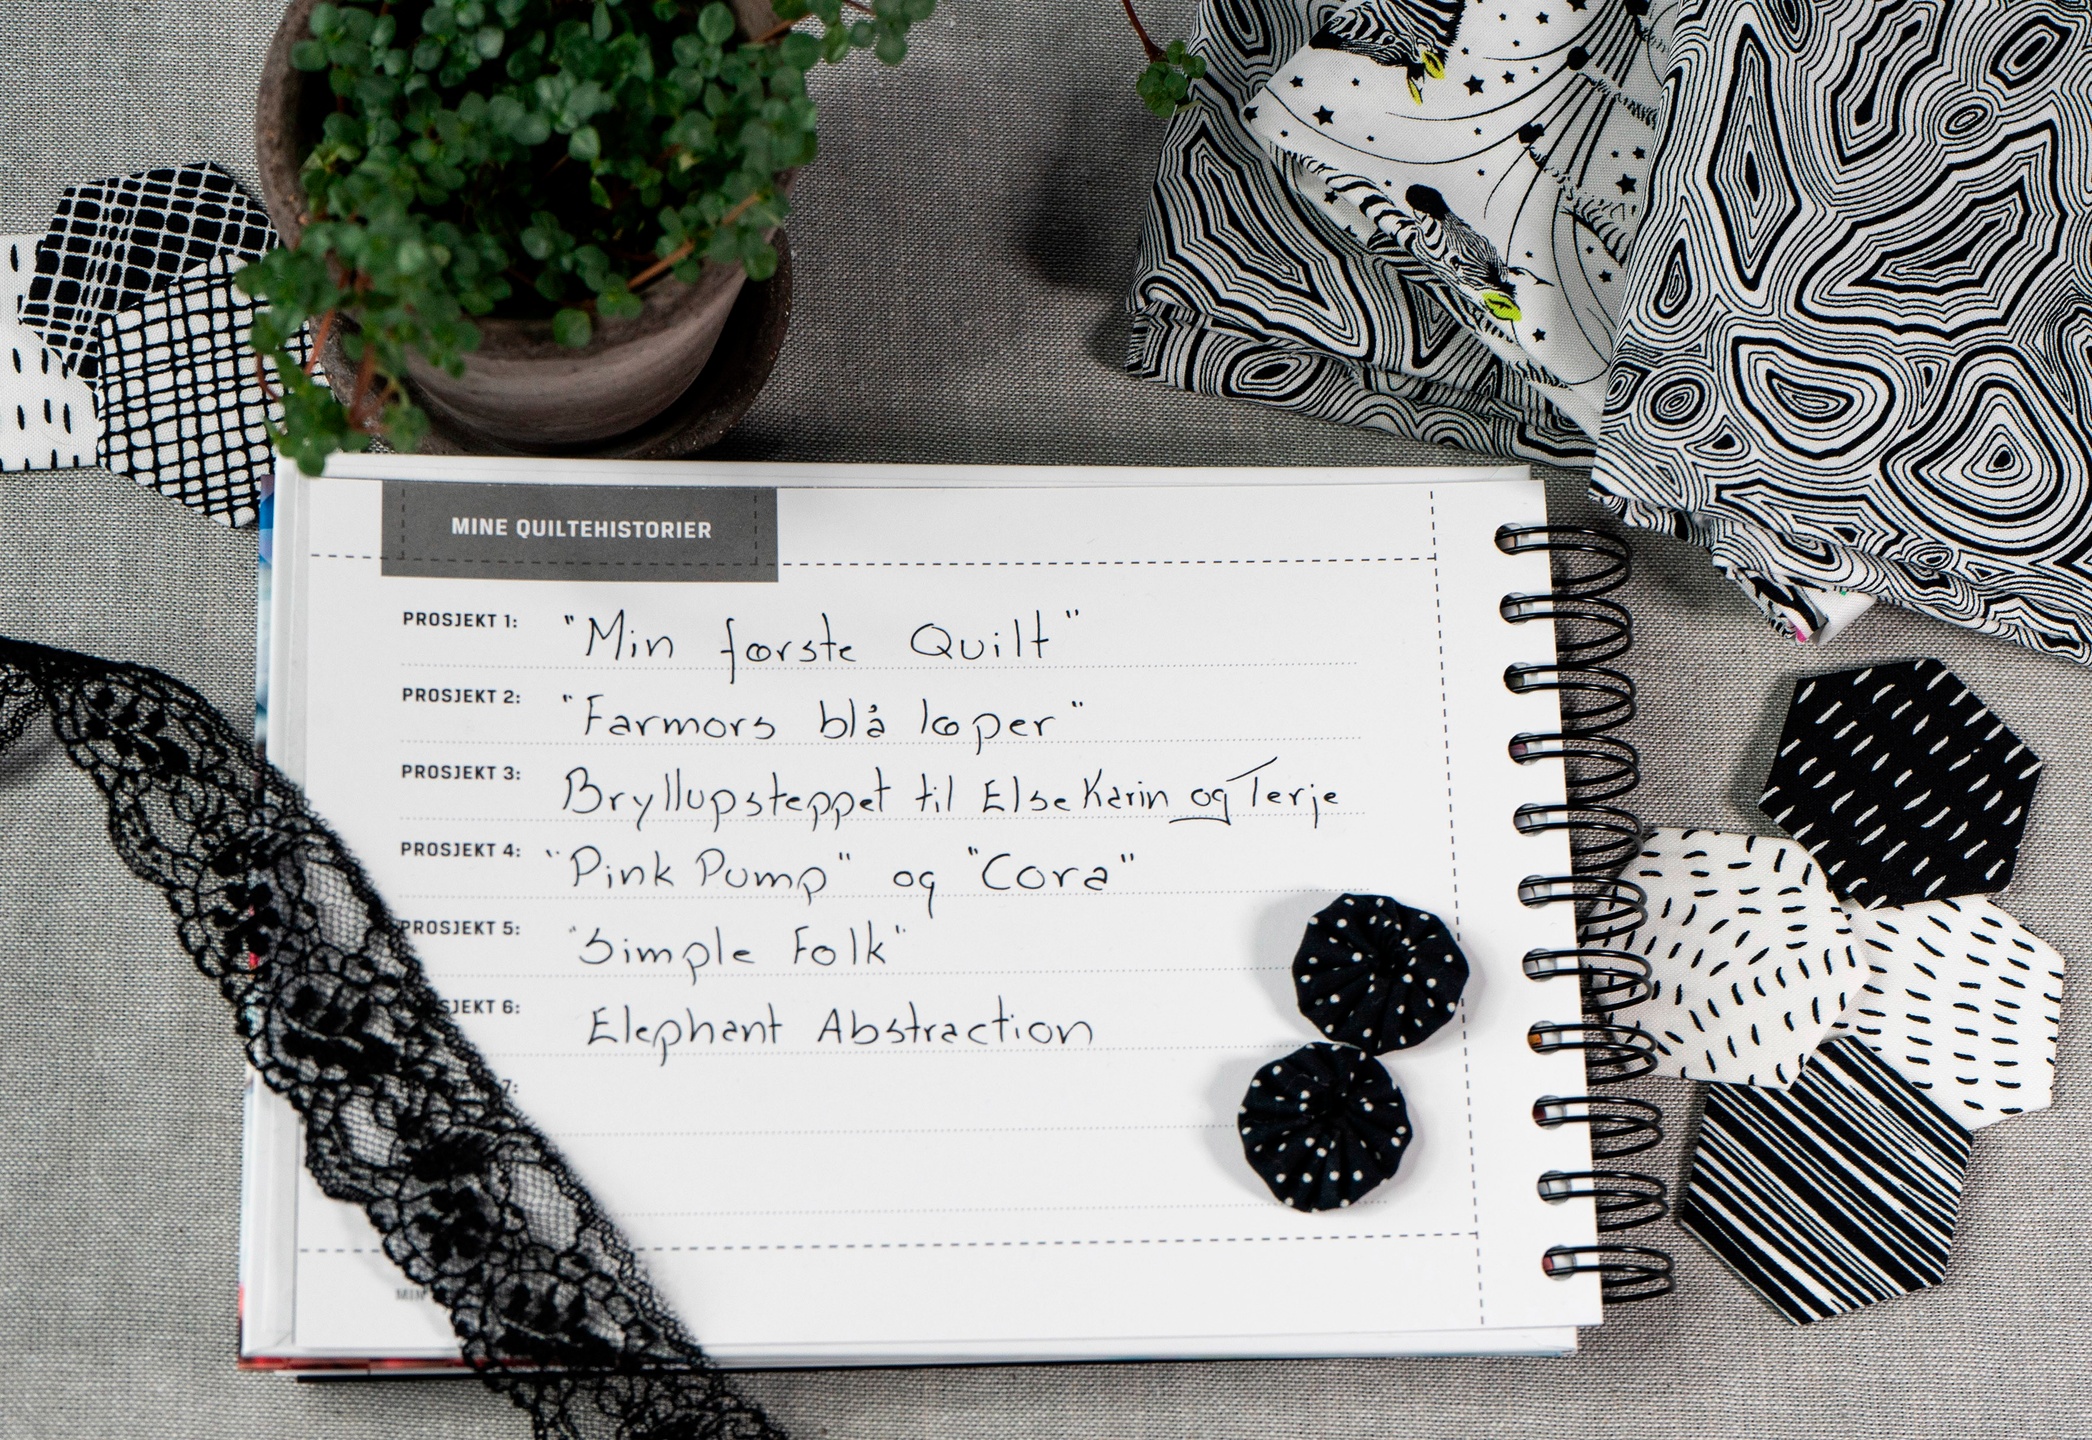 MINE QUILTEHISTORIER
PROSJEKT 1: "Min første Quilt"
PROSJEKT 2: "Farmors blå løper"
PROSJEKT 3: Bryllupsteppet til Else Karin og Terje
PROSJEKT 4: "Pink Pump" og "Cora"
PROSJEKT 5: "Simple Folk"
PROSJEKT 6: Elephant Abstraction
7: